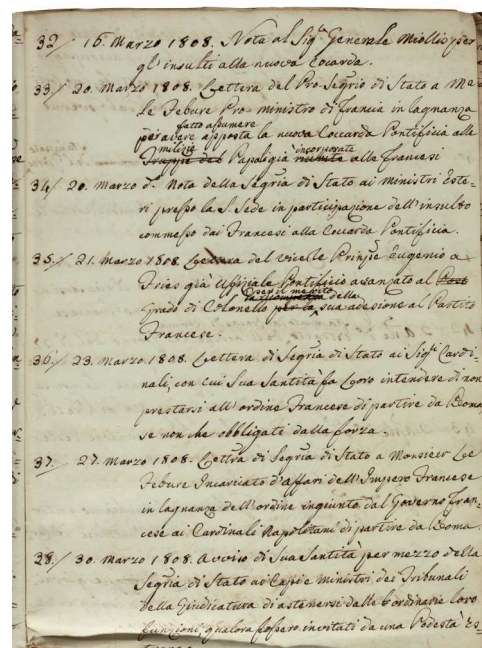 32/ 16. Marzo 1808. Nota al Sig.r Generale Miollis per
gl'insulti alla nuova Cocarda.
33/ 20. Marzo 1808. Lettera del Pro-Segrio di Stato a Mr
Le Febure Pro-ministro di francia in lagnanza
fatto assumere
per avere apposta la nuova Coccarda Pontificia alle
milizie incorporate
Truppe del Papa già riunite alle francesi
34/ 20. Marzo d.o Nota della Segria di Stato ai Ministri Este-
ri presso la S. Sede in participazione dell'insulto
commesso dai Francesi alla Coccarda Pontificia.
35./ 21. Marzo 1808. Lettera del viceRe Prinpe Eugenio a
Fries già Uffiziale Pontificio avanzato al Post
per il merito
in ricompensa della
Grado di Colonello per la sua adesione al Partito
Francese.
36./ 23. Marzo 1808. Lettera di Segria di Stato ai Sigri Cardi-
nali, con cui Sua Santità fa Loro intendere di non
prestarsi all'ordine Francese di partire da Roma
se non che obbligati dalla forza.
37. 27. Marzo 1808. Lettra di Segria di Stato a Monsieur Le
Febure Incaricato d'affari dell'Impero Francese
in lagnanza dell'ordine ingiunto dal Governo fran-
cese ai Cardinali Napolitani di partire da Roma.
28./ 30. Marzo 1808. Avviso di Sua Santità per mezzo della
Segria di Stato ai Capi e ministri dei Tribunali
della Giudicatura di astenersi dalle ordinarie loro
funzioni, qualora fossero invitati da una Podestà es-